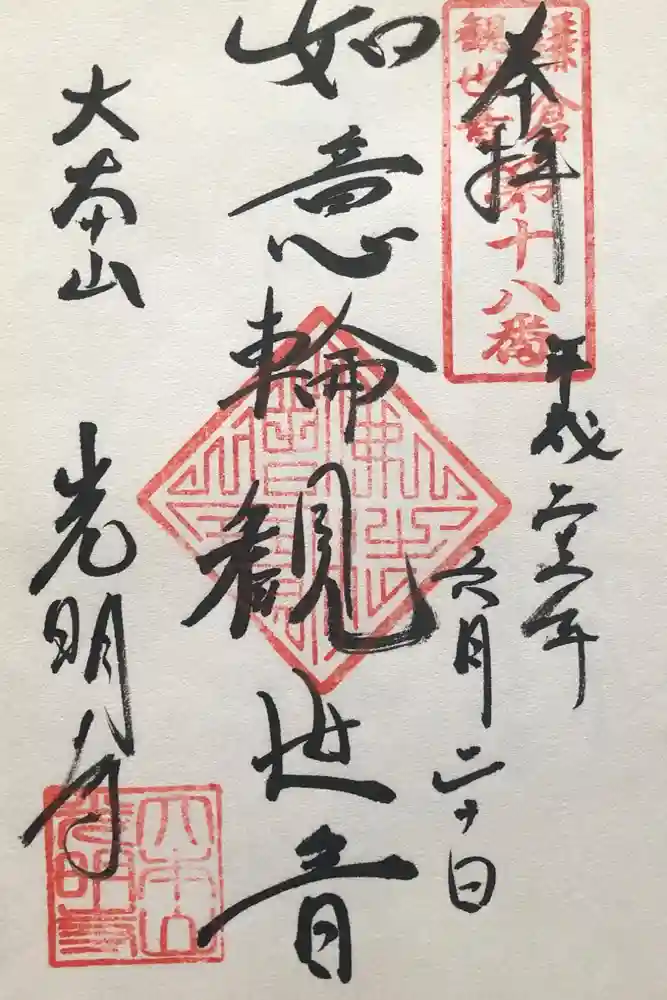 鎌倉
観世音
第十八番
奉拝
平成
年
六月二十日
如意輪観世音
大本山
光明寺
大本山
光明寺